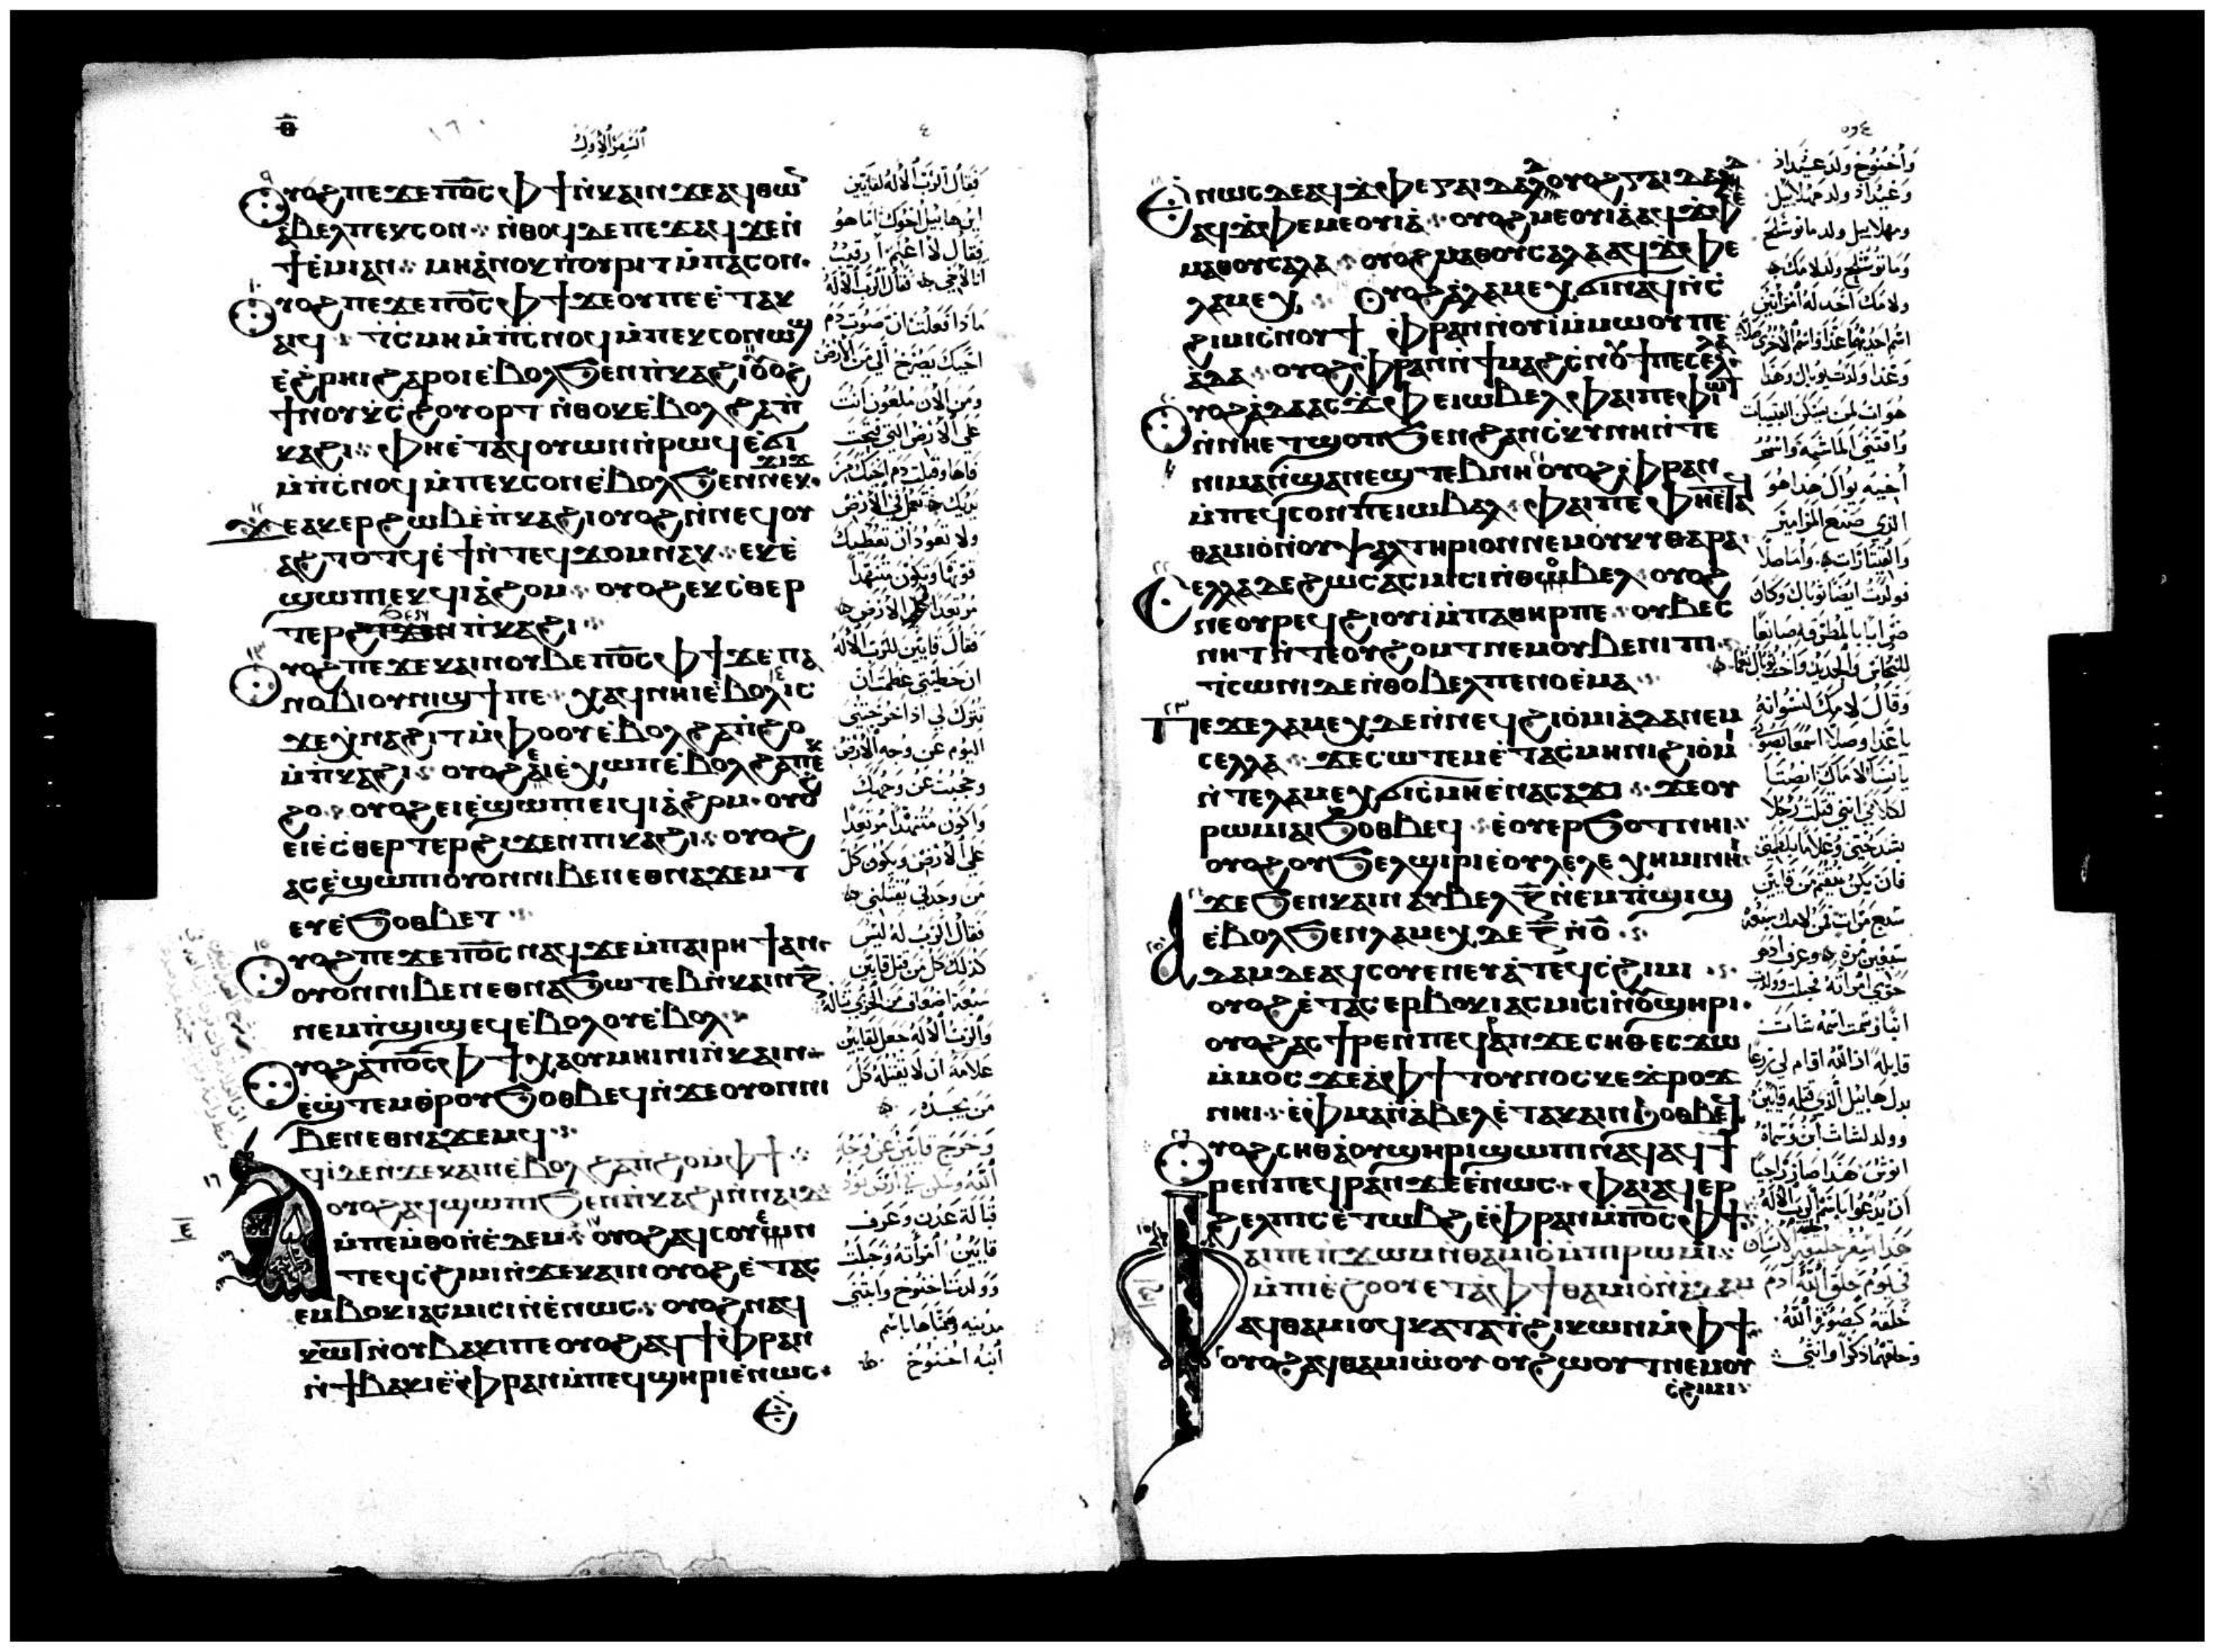 ⲑ
السفر الاول
ⲟⲩⲟϩ ⲡⲉϫⲉ ⲡⲟ̅ⲥ̅ ⲫϯ ⲛ̀ⲕⲁⲓⲛ ϫⲉ ⲁϥⲑⲱⲛ
ⲁⲃⲉⲗ ⲡⲉⲕⲥⲟⲛ ⲛ̀ⲑⲟϥ ⲇⲉ ⲡⲉϫⲁϥ ϫⲉ ⲛ̀
ϯⲉ̀ⲙⲓ ⲁⲛ ⲙⲏ ⲁ̀ⲛⲟⲕ ⲡ̀ⲟⲩⲣⲓⲧ ⲙ̀ⲡⲁⲥⲟⲛ
ⲟⲩⲟϩ ⲡⲉϫⲉ ⲡⲟ̅ⲥ̅ ⲫϯ ϫⲉ ⲟⲩ ⲡⲉ ⲉ̀ⲧⲁⲕ
ⲁⲓϥ ⲧ̀ⲥⲙⲏ ⲙ̀ⲡ̀ⲥⲛⲟϥ ⲙ̀ⲡⲉⲕⲥⲟⲛ ⲱϣ
ⲉ̀ϩ̀ⲣⲏⲓ ϩⲁⲣⲟⲓ ⲉ̀ⲃⲟⲗϧⲉⲛ ⲡ̀ⲕⲁϩⲓ ⲟⲩⲟϩ
ϯⲛⲟⲩ ⲕ̀ⲥϩⲟⲩⲟⲣⲧ ⲛ̀ⲑⲟⲕ ⲉ̀ⲃⲟⲗϩⲁ ⲡ̀
ⲕⲁϩⲓ ⲫⲏⲉ̀ⲧⲁϥⲟⲩⲱⲛ ⲛ̀ⲣⲱϥ ⲉ̀ϭⲓ
ⲙ̀ⲡ̀ⲥⲛⲟϥ ⲙ̀ⲡⲉⲕⲥⲟⲛ ⲉ̀ⲃⲟⲗϧⲉⲛ ⲛⲉⲕϫⲓϫ
ϫⲉ ⲁⲕⲉⲣϩⲱⲃ ⲉ̀ⲡ̀ⲕⲁϩⲓ ⲟⲩⲟϩ ⲛ̀ⲛⲉϥⲟⲩ
ⲁϩⲧⲟⲧϥ ⲉ̀ϯ ⲛ̀ⲧⲉϥϫⲟⲙ ⲛⲁⲕ ⲉⲕⲉ̀
ϣⲱⲡⲓ ⲉⲕϥⲓⲁ̀ϩⲟⲙ ⲟⲩⲟϩ ⲉⲕⲥ̀ⲑⲉⲣ
ⲧⲉⲣ ϩⲓϫⲉⲛ ⲡ̀ⲕⲁϩⲓ
ⲟⲩⲟϩ ⲡⲉϫⲉ ⲕⲁⲓⲛ ⲟⲩⲃⲉ ⲡⲟ̅ⲥ̅ ⲫϯ ϫⲉ ⲡⲁ
ⲛⲟⲃⲓ ⲟⲩⲛⲓϣϯ ⲡⲉ ⲭⲁϥ ⲛⲏⲓ ⲉ̀ⲃⲟⲗ ⲓⲥ
ϫⲉ ⲭ̀ⲛⲁϩⲓⲧ ⲙ̀ⲫⲟⲟⲩ ⲉ̀ⲃⲟⲗϩⲁ ⲡ̀ϩⲟ
ⲙ̀ⲡ̀ⲕⲁϩⲓ ⲟⲩⲟϩ ⲉⲓⲉ̀ⲭⲱⲡ ⲉ̀ⲃⲟⲗϩⲁ ⲡⲉⲕ
ϩⲟ ⲟⲩⲟϩ ⲉⲓⲉ̀ϣⲱⲡⲓ ⲉⲓϥⲓⲁ̀ϩⲟⲙ ⲟⲩⲟϩ
ⲉⲓⲉ̀ⲥⲑⲉⲣⲧⲉⲣ ϩⲓϫⲉⲛ ⲡⲓⲕⲁϩⲓ ⲟⲩⲟϩ
ⲁⲥⲉ̀ϣⲱⲡⲓ ⲟⲩⲟⲛ ⲛⲓⲃⲉⲛ ⲉⲑⲛⲁϫⲉⲙⲧ
ⲉⲩⲉ̀ϧⲟⲑⲃⲉⲧ
ⲟⲩⲟϩ ⲡⲉϫⲉ ⲡⲟ̅ⲥ̅ ⲛⲁϥ ϫⲉ ⲙ̀ⲡⲁⲓⲣⲏϯ ⲁⲛ
ⲟⲩⲟⲛ ⲛⲓⲃⲉⲛ ⲉⲑⲛⲁϧⲱⲧⲉⲃ ⲛ̀ⲕⲁⲓⲛ ⲍ̅
ⲛⲉⲙⲡ̀ϣⲓϣ ⲉϥⲉ̀ⲃⲟⲗⲟⲩ ⲉ̀ⲃⲟⲗ
ⲟⲩⲟϩ ⲁ̀ ⲡⲟ̅ⲥ̅ ⲫϯ ⲭⲁ ⲟⲩⲙⲏⲓⲛⲓ ⲛ̀ⲕⲁⲓⲛ
ⲉ̀ϣ̀ⲧⲉⲙⲑ̀ⲣⲟⲩϧⲟⲑⲃⲉϥ ⲛ̀ϫⲉ ⲟⲩⲟⲛ ⲛⲓ
ⲃⲉⲛ ⲉⲑⲛⲁϫⲉⲙϥ
ⲁϥⲓ ⲇⲉ ⲛ̀ϫⲉ ⲕⲁⲓⲛ ⲉ̀ⲃⲟⲗϩⲁ ⲡ̀ϩⲟ ⲙ̀ⲫϯ
ⲟⲩⲟϩ ⲁϥϣⲱⲡⲓ ϧⲉⲛ ⲡ̀ⲕⲁϩⲓ ⲛ̀ⲛⲁⲓⲇ
ⲙ̀ⲡⲉⲙⲑⲟ ⲛ̀ⲉ̀ⲇⲉⲙ ⲟⲩⲟϩ ⲁϥⲥⲟⲩⲉⲛ
ⲧⲉϥⲥ̀ϩⲓⲙⲓ ⲛ̀ϫⲉ ⲕⲁⲓⲛ ⲟⲩⲟϩ ⲉ̀ⲧⲁⲥ
ⲉⲙⲃⲟⲕⲓ ⲁⲥⲙⲓⲥⲓ ⲛ̀ⲉ̀ⲛⲱⲥ ⲟⲩⲟϩ ⲛⲁϥ
ⲕⲱⲧ ⲛ̀ⲟⲩⲃⲁⲕⲓ ⲡⲉ ⲟⲩⲟϩ ⲁϥϯ ⲫ̀ⲣⲁⲛ
ⲛ̀ϯⲃⲁⲕⲓ ⲉ̀ⲫ̀ⲣⲁⲛ ⲙ̀ⲡⲉϥϣⲏⲣⲓ ⲉ̀ⲛⲱⲥ
ⲉ̀
فقال الرب الاله لقايين
اين هابيل اخوك اما هو
فقال لا اعلم ارقيب
انا لاخي فقال الرب الاله
ماذا فعلت ان صوت دم
اخيك يصرخ الي من الارض
ومن الان ملعون انت
على الارض التي فتحت
فاها وقبلت دم اخيك من
يديك تعمل في الارض
ولا تعود ان تعطيك
قوتها وتكون متنهدا
مرتعدا على الارض
فقال قايين للرب الاله
ان خطيتي عظمت ان
تترك لي اذ اخرجتني
اليوم عن وجه الارض
وحجبت عن وجهك
واكون متنهدا مرتعدا
على الارض ويكون كل
من وجدني يقتلني
فقال الرب له ليس
كذلك كل من قتل قايين
والرب الاله جعل لقايين
علامة ان لا يقتله كل
من يجده
وخرج قايين عن وجه
الله وسكن في ارض نود
قبالة عدن وعرف
قايين امراته وحبلت
وولدت اخنوخ وابتنى
مدينه وسماها باسم
ابنه اخنوخ
ⲉ̀ⲛⲱⲥ ⲇⲉ ⲁϥϫ̀ⲫⲉ ⲅⲁⲓⲇⲁⲇ ⲟⲩⲟϩ ⲅⲁⲓⲇⲁⲇ
ⲁϥϫ̀ⲫⲉ ⲙⲉⲟⲩⲓⲁ̀ ⲟⲩⲟϩ ⲙⲉⲟⲩⲓⲁ̀ ⲁϥϫ̀ⲫⲉ
ⲙⲁⲑⲟⲩⲥⲁⲗⲁ ⲟⲩⲟϩ ⲙⲁⲑⲟⲩⲥⲁⲗⲁ ⲁϥϫ̀ⲫⲉ
ⲗⲁⲙⲉⲭ ⲟⲩⲟϩ ⲁ̀ ⲗⲁⲙⲉⲭ ϭⲓ ⲛⲁϥ ⲛ̀ⲥ̀
ϩⲓⲙⲓ ⲥ̀ⲛⲟⲩϯ ⲫ̀ⲣⲁⲛ ⲛ̀ⲟⲩⲓ ⲙ̀ⲙⲱⲟⲩ ⲡⲉ
ⲁ̀ⲇⲁ ⲟⲩⲟϩ ⲫ̀ⲣⲁⲛ ⲛ̀ϯⲙⲁϩⲥ̀ⲛⲟⲩϯ ⲡⲉ ⲥⲉⲗⲗⲁ
ⲟⲩⲟϩ ⲁ̀ⲇⲁ ⲁⲥϫ̀ⲫⲉ ⲓⲱⲃⲉⲗ ⲫⲁⲓ ⲡⲉ ⲫ̀ⲓⲱⲧ
ⲛ̀ⲛⲏⲉⲧϣⲟⲡ ϧⲉⲛ ϩⲁⲛⲥ̀ⲕⲩⲛⲏ ⲛ̀ⲧⲉ
ⲛⲓⲙⲁⲛ̀ϣⲁⲛⲉϣⲧⲉⲃⲛⲏ ⲟⲩⲟϩ ⲫ̀ⲣⲁⲛ
ⲙ̀ⲡⲉϥⲥⲟⲛ ⲡⲉ ⲓⲱⲃⲁⲗ ⲫⲁⲓ ⲡⲉ ⲫⲏⲉ̀ⲧⲁϥ
ⲑⲁⲙⲓⲟ̀ ⲛ̀ⲟⲩⲯⲁⲗⲧⲏⲣⲓⲟⲛ ⲛⲉⲙ ⲟⲩⲕⲩⲑⲁⲣⲁ
ⲥⲉⲗⲗⲁ ⲇⲉ ϩⲱⲥ ⲁⲥⲙⲓⲥⲓ ⲛ̀ⲑⲟⲃⲉⲗ ⲟⲩⲟϩ
ⲛⲉ ⲟⲩⲣⲉϥϩⲓⲟⲩⲓ ⲙ̀ⲡⲁⲑⲏⲣ ⲡⲉ ⲟⲩⲃⲉⲥ
ⲛⲏⲧ ⲛ̀ⲧⲉ ⲟⲩϩⲟⲙⲧ ⲛⲉⲙ ⲟⲩⲃⲉⲛⲓⲡⲓ
ⲧ̀ⲥⲱⲛⲓ ⲇⲉ ⲛ̀ⲑⲟⲃⲉⲗ ⲡⲉ ⲛⲟⲉ̀ⲙⲁ
ⲡⲉϫⲉ ⲗⲁⲙⲉⲭ ⲇⲉ ⲛ̀ⲛⲉϥϩⲓⲟ̀ⲙⲓ ⲁ̀ⲇⲁ ⲛⲉⲙ
ⲥⲉⲗⲗⲁ ϫⲉ ⲥⲱⲧⲉⲙ ⲉ̀ⲧⲁⲥⲙⲏ ⲛⲓϩⲓⲟ̀ⲙⲓ
ⲛ̀ⲧⲉ ⲗⲁⲙⲉⲭ ϭⲓⲥⲙⲏ ⲉ̀ⲛⲁⲥⲁϫⲓ ϫⲉ ⲟⲩ
ⲣⲱⲙⲓ ⲁⲓϧⲟⲑⲃⲉϥ ⲉ̀ⲟⲩⲉⲣϧⲟⲧ ⲛⲏⲓ
ⲟⲩⲟϩ ⲟⲩϧⲉⲗϣⲓⲣⲓ ⲉ̀ⲟⲩⲗⲉⲗⲉⲭⲏⲙⲓ ⲛⲏⲓ
ϫⲉ ϧⲉⲛ ⲕⲁⲓⲛ ⲁⲩⲃⲉⲗ ⲍ̅ ⲛ̀ⲉⲙⲡ̀ϣⲓϣ
ⲉ̀ⲃⲟⲗϧⲉⲛ ⲗⲁⲙⲉⲭ ⲇⲉ ⲍ̅ ⲛ̀ⲟ̅
ⲁⲇⲁⲙ ⲇⲉ ⲁϥⲥⲟⲩⲉⲛ ⲉⲩⲁ̀ ⲧⲉϥⲥ̀ϩⲓⲙⲓ
ⲟⲩⲟϩ ⲉ̀ⲧⲁⲥⲉⲣⲃⲟⲕⲓ ⲁⲥⲙⲓⲥⲓ ⲛ̀ⲟⲩϣⲏⲣⲓ
ⲟⲩⲟϩ ⲁⲥϯⲣⲉⲛ ⲡⲉϥⲣⲁⲛ ϫⲉ ⲥⲏⲑ ⲉⲥϫⲱ
ⲙ̀ⲙⲟⲥ ϫⲉ ⲁ̀ ⲫϯ ⲧⲟⲩⲛⲟⲥ ⲕⲉϫ̀ⲣⲟϫ
ⲛⲏⲓ ⲉ̀ⲫ̀ⲙⲁ ⲛ̀ⲁ̀ⲃⲉⲗ ⲉ̀ⲧⲁ ⲕⲁⲓⲛ ϧⲟⲑⲃⲉϥ
ⲟⲩⲟϩ ⲥⲏⲑ ⲁ̀ ⲟⲩϣⲏⲣⲓ ϣⲱⲡⲓ ⲛⲁϥ ⲁϥϯ
ⲣⲉⲛ ⲡⲉϥⲣⲁⲛ ϫⲉ ⲉ̀ⲛⲱⲥ ⲫⲁⲓ ⲁϥⲉⲣ
ϩⲉⲗⲡⲓⲥ ⲉ̀ⲧⲱⲃϩ ⲉ̀ⲫ̀ⲣⲁⲛ ⲙ̀ⲡⲟ̅ⲥ̅ ⲫϯ
ⲫⲁⲓ ⲡⲉ ⲡ̀ϫⲱⲙ ⲛ̀ⲑⲁⲙⲓⲟ̀ ⲛ̀ⲛⲓⲣⲱⲙⲓ
ⲙ̀ⲡⲓⲉ̀ϩⲟⲟⲩ ⲉⲧⲁ̀ ⲫϯ ⲑⲁⲙⲓⲟ̀ ⲛ̀ⲁ̀ⲇⲁⲙ
ⲁϥⲑⲁⲙⲓⲟϥ ⲕⲁⲧⲁ ⲧ̀ϩⲓⲕⲱⲛ ⲙ̀ⲫϯ
ⲟⲩⲟϩ ⲁϥⲑⲁⲙⲓⲱⲟⲩ ⲟⲩϩⲱⲟⲩⲧ ⲛⲉⲙ ⲟⲩ
ⲥ̀ϩⲓⲙⲓ
واخنوخ ولد عيداد
وعيداد ولد مهلاييل
ومهلاييل ولد ماتوشلح
وماتوشلح ولد لامك
ولامك اتخذ له امراتين
وعدا ولدت يوبال وهذا
هو اب لمن يسكن القبيات
واقتنى الماشية واسم
اخيه يوبال هذا هو
الذي صنع المزامير
والقيتارات واما صلا
فولدت ايضا توبال وكان
ضرابا بالمطرقه صانعا
وقال لامك لنسوانه
يا عدا وصلا اسمعا صوتي
يا نسا لامك انصتا
لكلامي انني قتلت رجلا
فان يكن ينتقم من قايين
سبع مرات فمن لامك سبعة
سبعين مره وعرف ادم
حوى امراته فحبلت وولدت
ابنا وسمت اسمه شات
قايله ان الله اقام لي زرعا
بدل هابيل الذي قتله قايين
وولد لشات ابن وسماه
انوش هذا صار راجيا
ان يدعوا باسم الرب الاله
هذا سفر خليقة الانسان
في يوم خلق الله ادم
خلقه كصورة الله
وخلقهما ذكرا وانثى